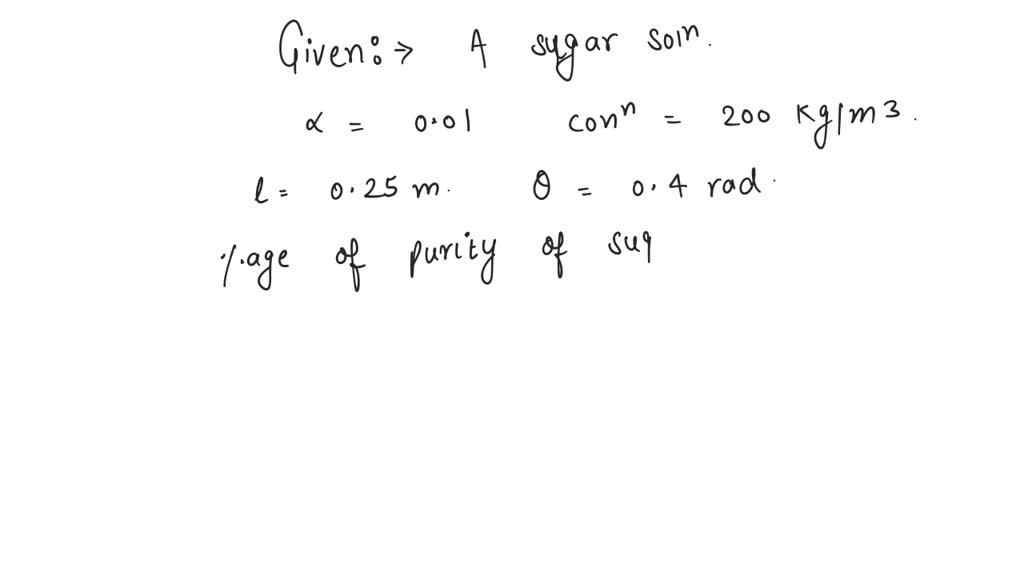 Given:→ A sugar soln.
α = 0.01 conⁿ = 200 Kg/m3.
l = 0.25 m. θ = 0.4 rad.
%age of purity of sug